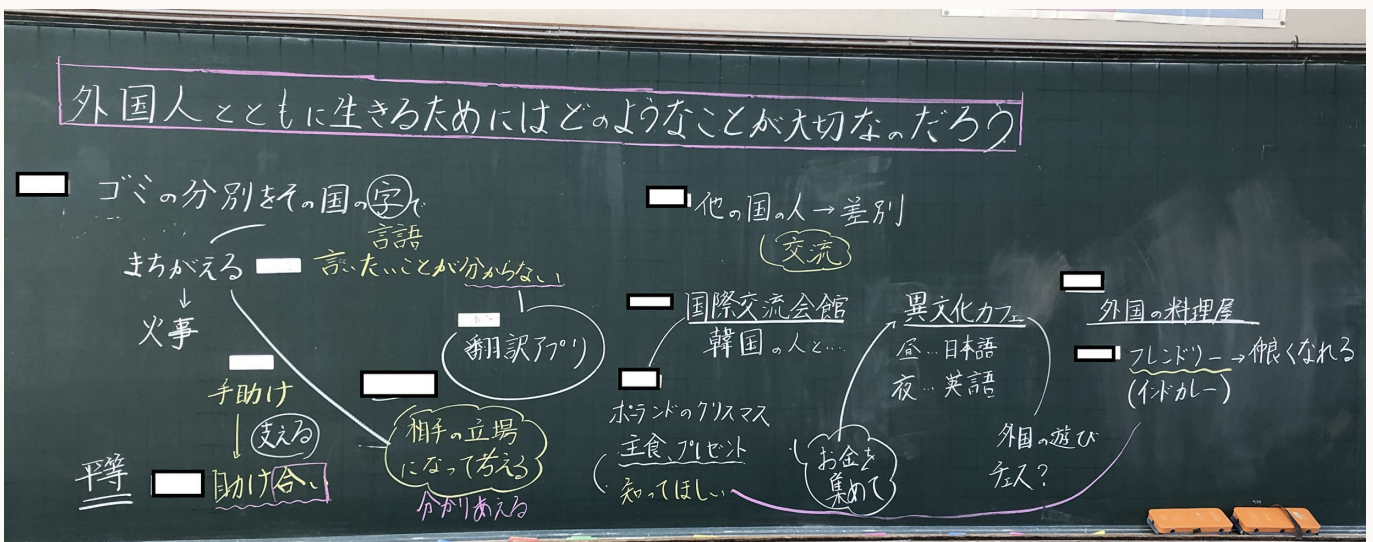 外国人とともに生きるためにはどのようなことが大切なのだろう
ゴミの分別をその国の字で
言語
まちがえる
言いたいことが分からない
↓
火事
翻訳アプリ
手助け
↓
支える
平等
助け合い
相手の立場
になって考える
分かりあえる
他の国の人→差別
交流
国際交流会館
韓国の人と…
ポーランドのクリスマス
主食、プレゼント
知ってほしい
異文化カフェ
昼…日本語
夜…英語
お金を
集めて
外国の遊び
チェス?
外国の料理屋
フレンドリー→仲良くなれる
(インドカレー)